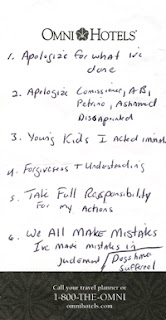 OMNI HOTELS®
1. Apologize for what I've
done
2. Apologize Comissioner, AB,
Petrino, Ashamed
Disappointed
3. Young Kids I Acted
4. Forgiveness + Understanding
5. Take Full Responsibility
For my Actions
6. We All Make Mistakes
I've Made mistakes in
judement
suffered
Call your travel planner or
1-800-THE-OMNI
omnihotels.com